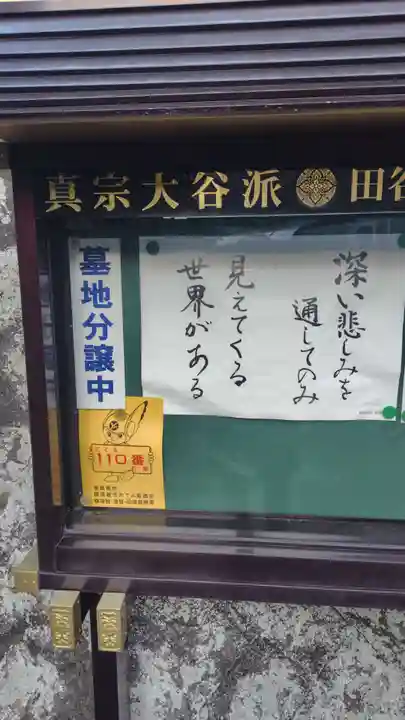 真宗大谷派 田谷
深い悲しみを
通してのみ
見えてくる
世界がある
墓地分譲中
こども
110番
の家